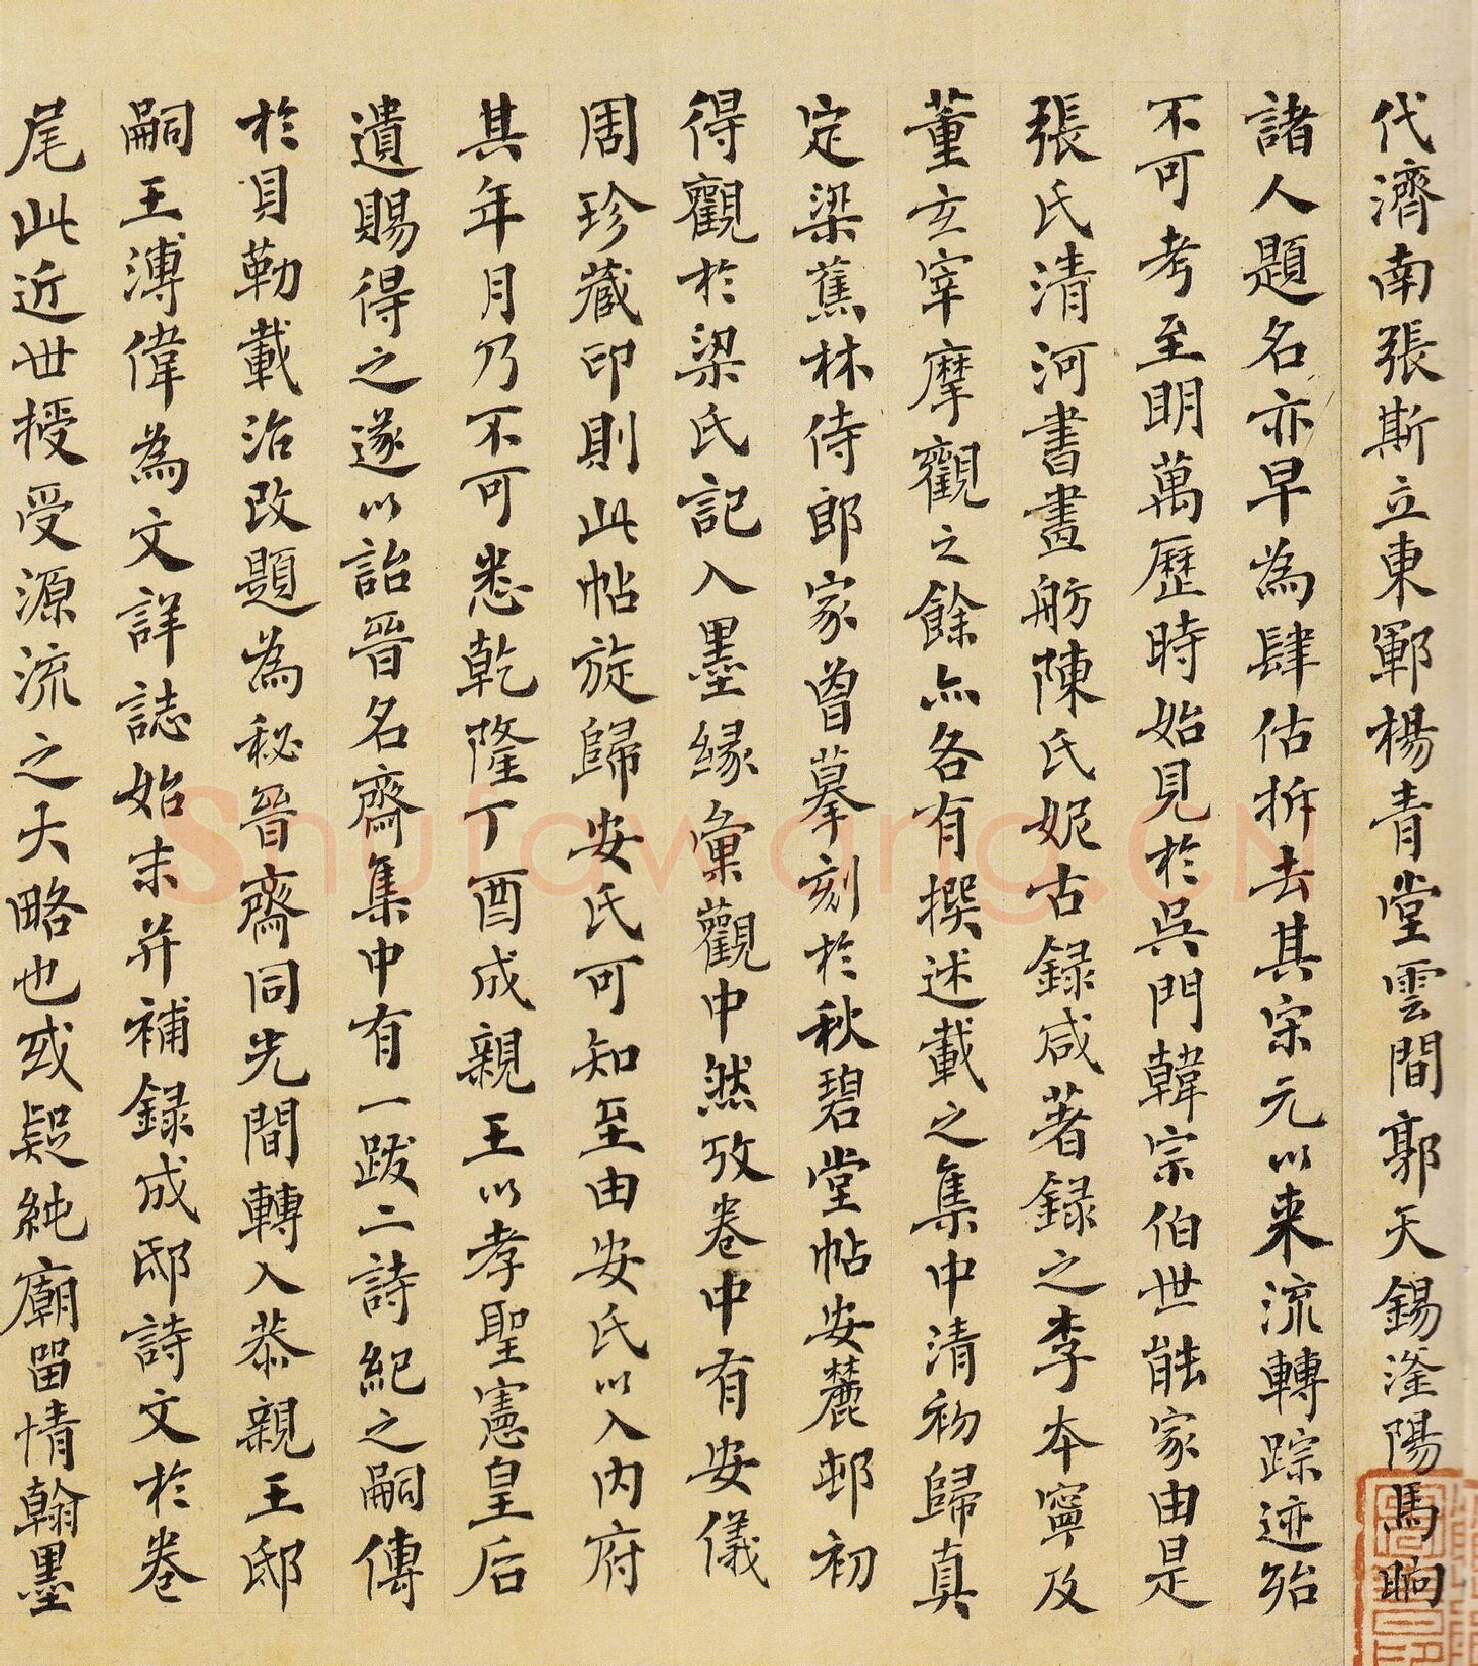 代濟南張斯立東鄆楊青堂雲間郭天錫滏陽馬晌
諸人題名亦早為肆估拆去其宋元以来流轉踪迹殆
不可考至明萬歷時始見於吳門韓宗伯世能家由是
張氏清河書畫舫陳氏妮古録咸著録之李本寧及
董玄宰摩觀之餘亦各有撰述載之集中清初歸真
定梁蕉林侍郎家曾摹刻於秋碧堂帖安麓邨初
得觀於梁氏記入墨緣彙觀中然攷卷中有安儀
周珍藏印則此帖旋歸安氏可知至由安氏以入內府
其年月乃不可悉乾隆丁酉成親王以孝聖憲皇后
遺賜得之遂以詒晉名齋集中有一跋二詩紀之嗣傳
於貝勒載治改題為秘晉齋同光間轉入恭親王邸
嗣王溥偉為文詳誌始末并補録成邸詩文於卷
尾此近世授受源流之大略也或疑純廟留情翰墨
Shufawang.CN